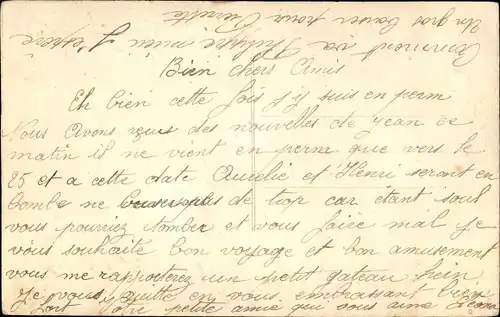 Bien chers Amis
Eh bien cette fois j'y suis en perm
Nous avons reçus des nouvelles de Jean ce
matin il ne vient en perm que vers le
25 et a cette date Aurelie et Henri seront en
bombe ne de trop car étant soul
vous pourriez tomber et vous faire mal je
vous souhaite bon voyage et bon amusement
vous me rapporterez un petit gateau hein
Je vous quitte en vous embrassant bien
fort votre petite amie qui vous aime
Comment va Philippe mieu J'espère
Un gros baiser pour